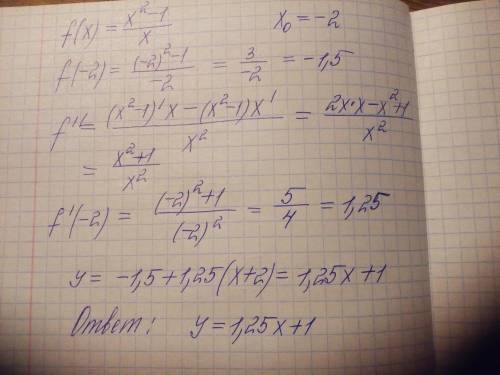 f(x) = (x²-1)/x   x₀ = -2
f(-2) = ((-2)²-1)/(-2) = 3/(-2) = -1,5
f' = ((x²-1)'x - (x²-1)x')/x² = (2x·x - x²+1)/x²
= (x²+1)/x²
f'(-2) = ((-2)²+1)/(-2)² = 5/4 = 1,25
y = -1,5+1,25(x+2) = 1,25x+1
Ответ: y = 1,25x+1